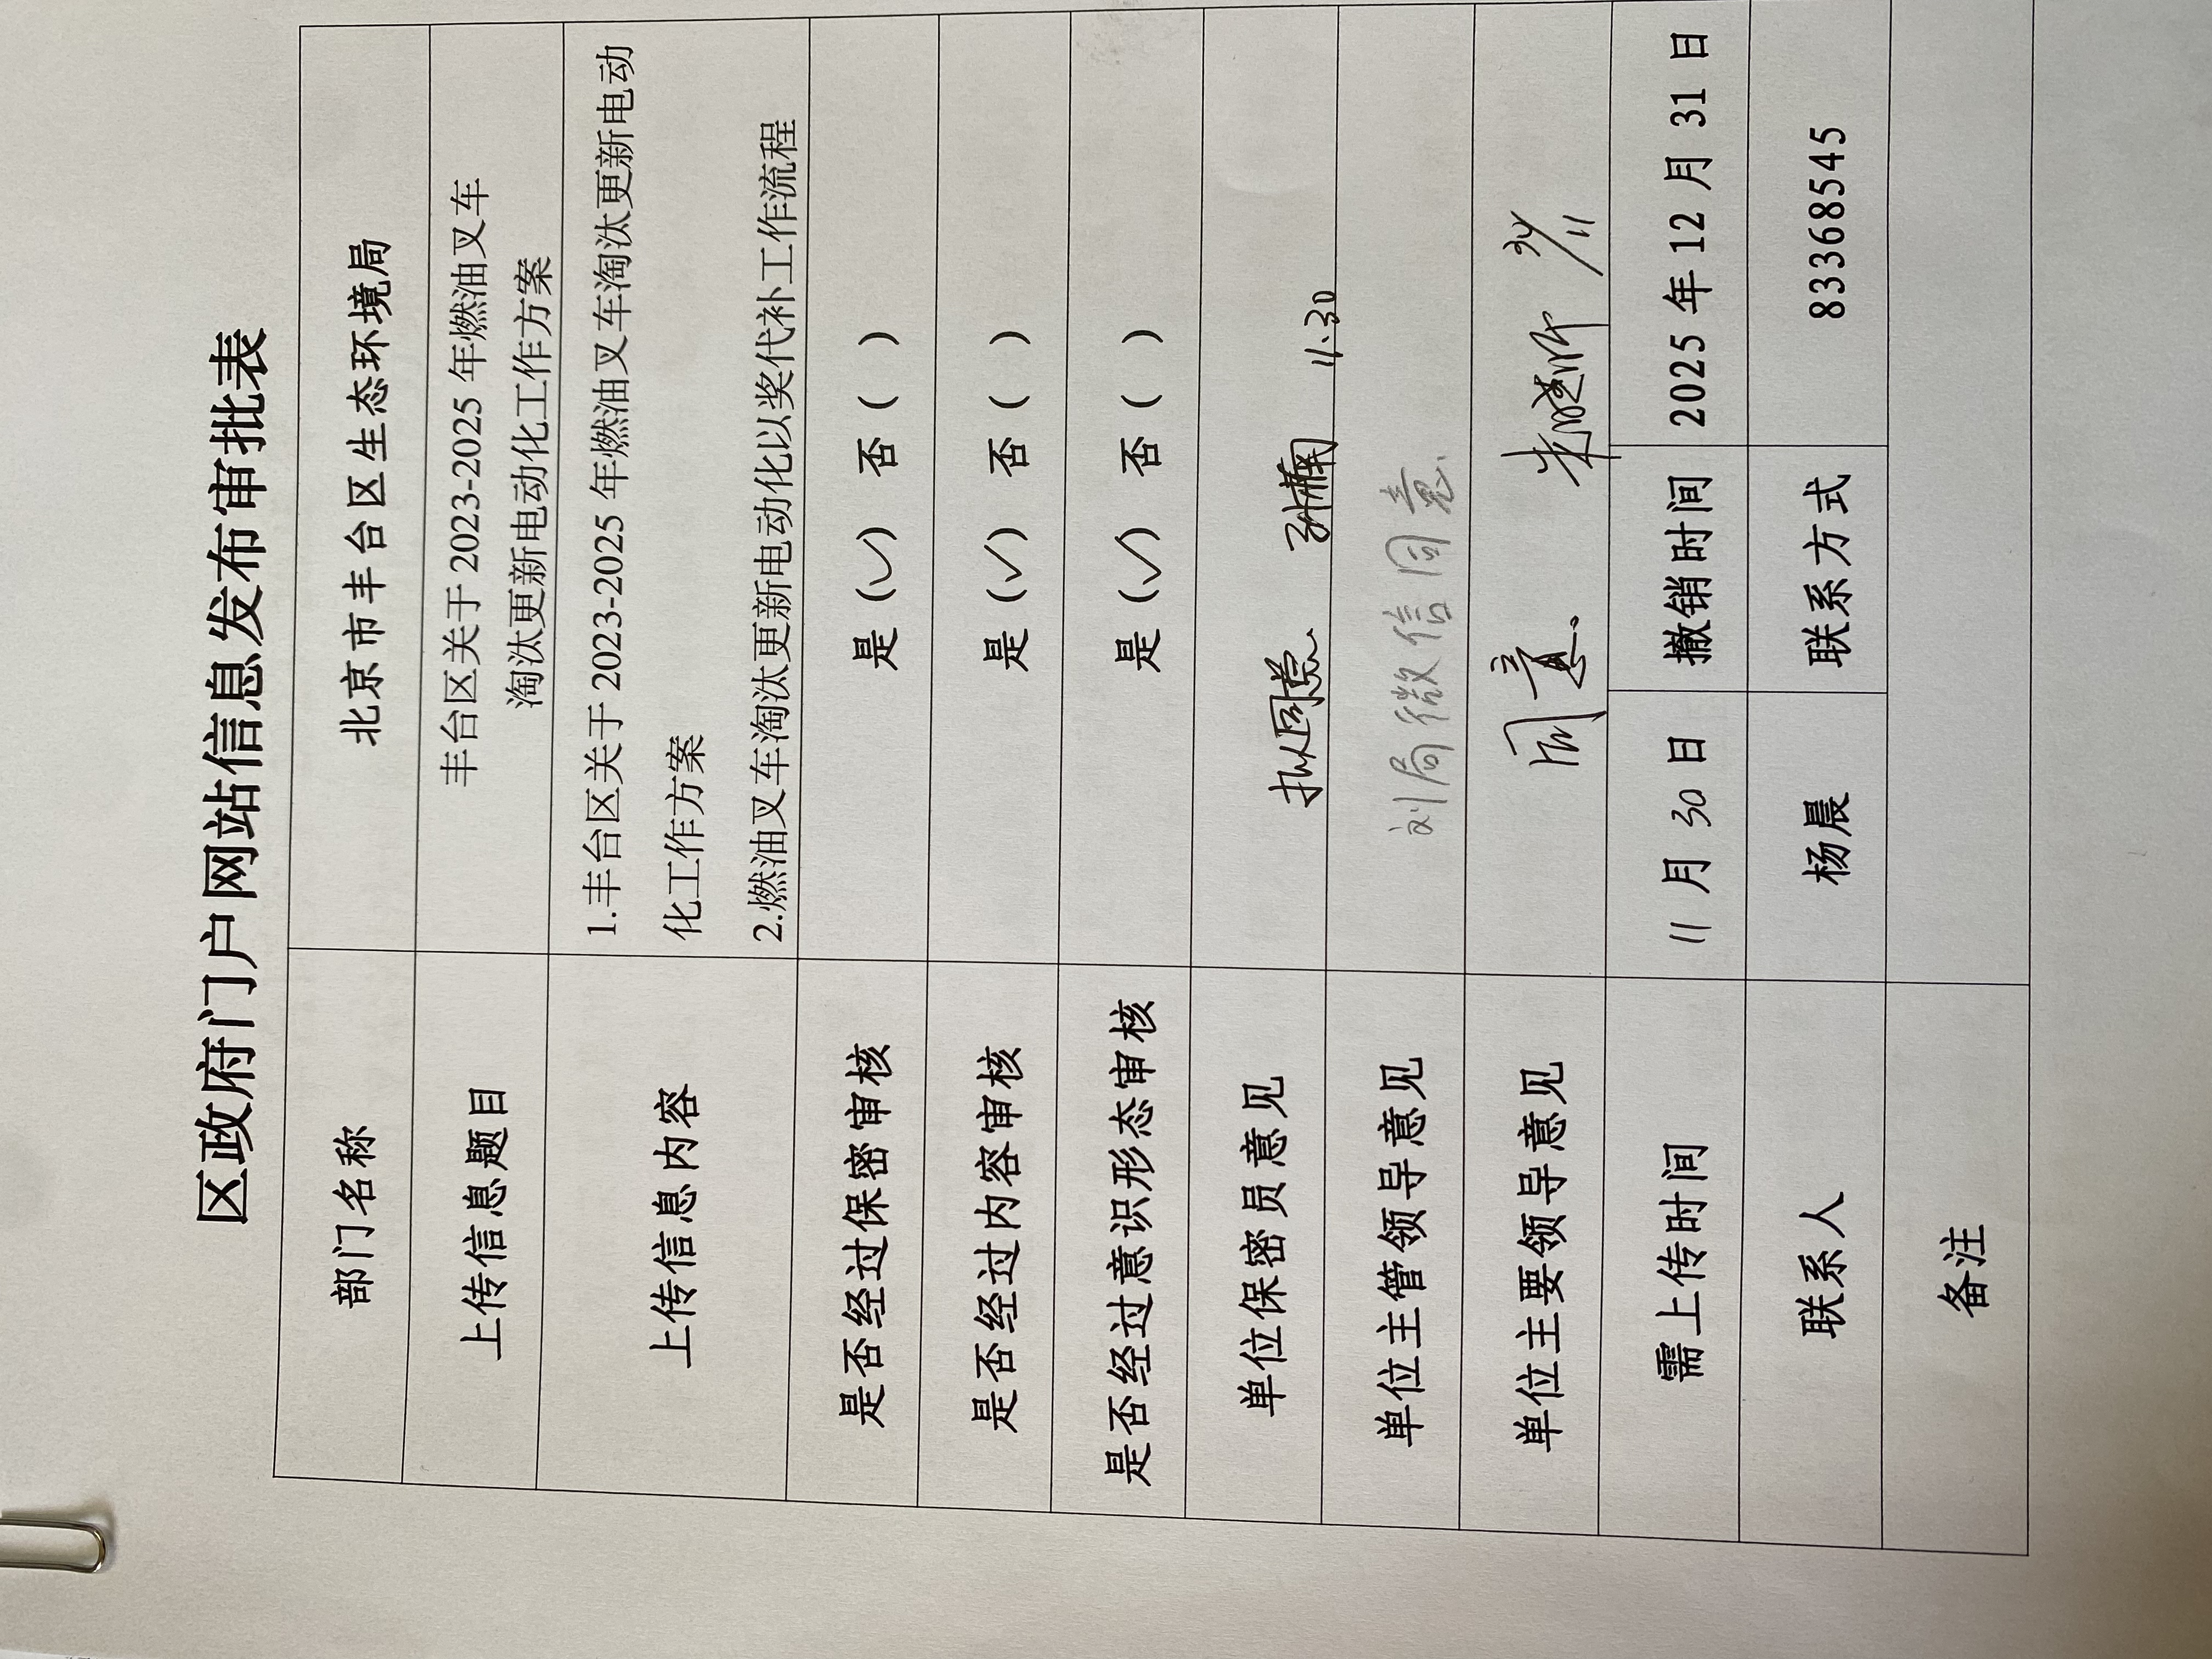 区政府门户网站信息发布审批表
部门名称 北京市丰台区生态环境局
上传信息题目 丰台区关于 2023-2025 年燃油叉车
淘汰更新电动化工作方案
上传信息内容 1.丰台区关于 2023-2025 年燃油叉车淘汰更新电动
化工作方案
2.燃油叉车淘汰更新电动化以奖代补工作流程
是否经过保密审核 是（✓） 否（ ）
是否经过内容审核 是（✓） 否（ ）
是否经过意识形态审核 是（✓） 否（ ）
单位保密员意见 拟同意 11.30
单位主管领导意见 刘局微信同意
单位主要领导意见 同意. 30/11
需上传时间 11 月 30 日 撤销时间 2025 年 12 月 31 日
联系人 杨晨 联系方式 83368545
备注